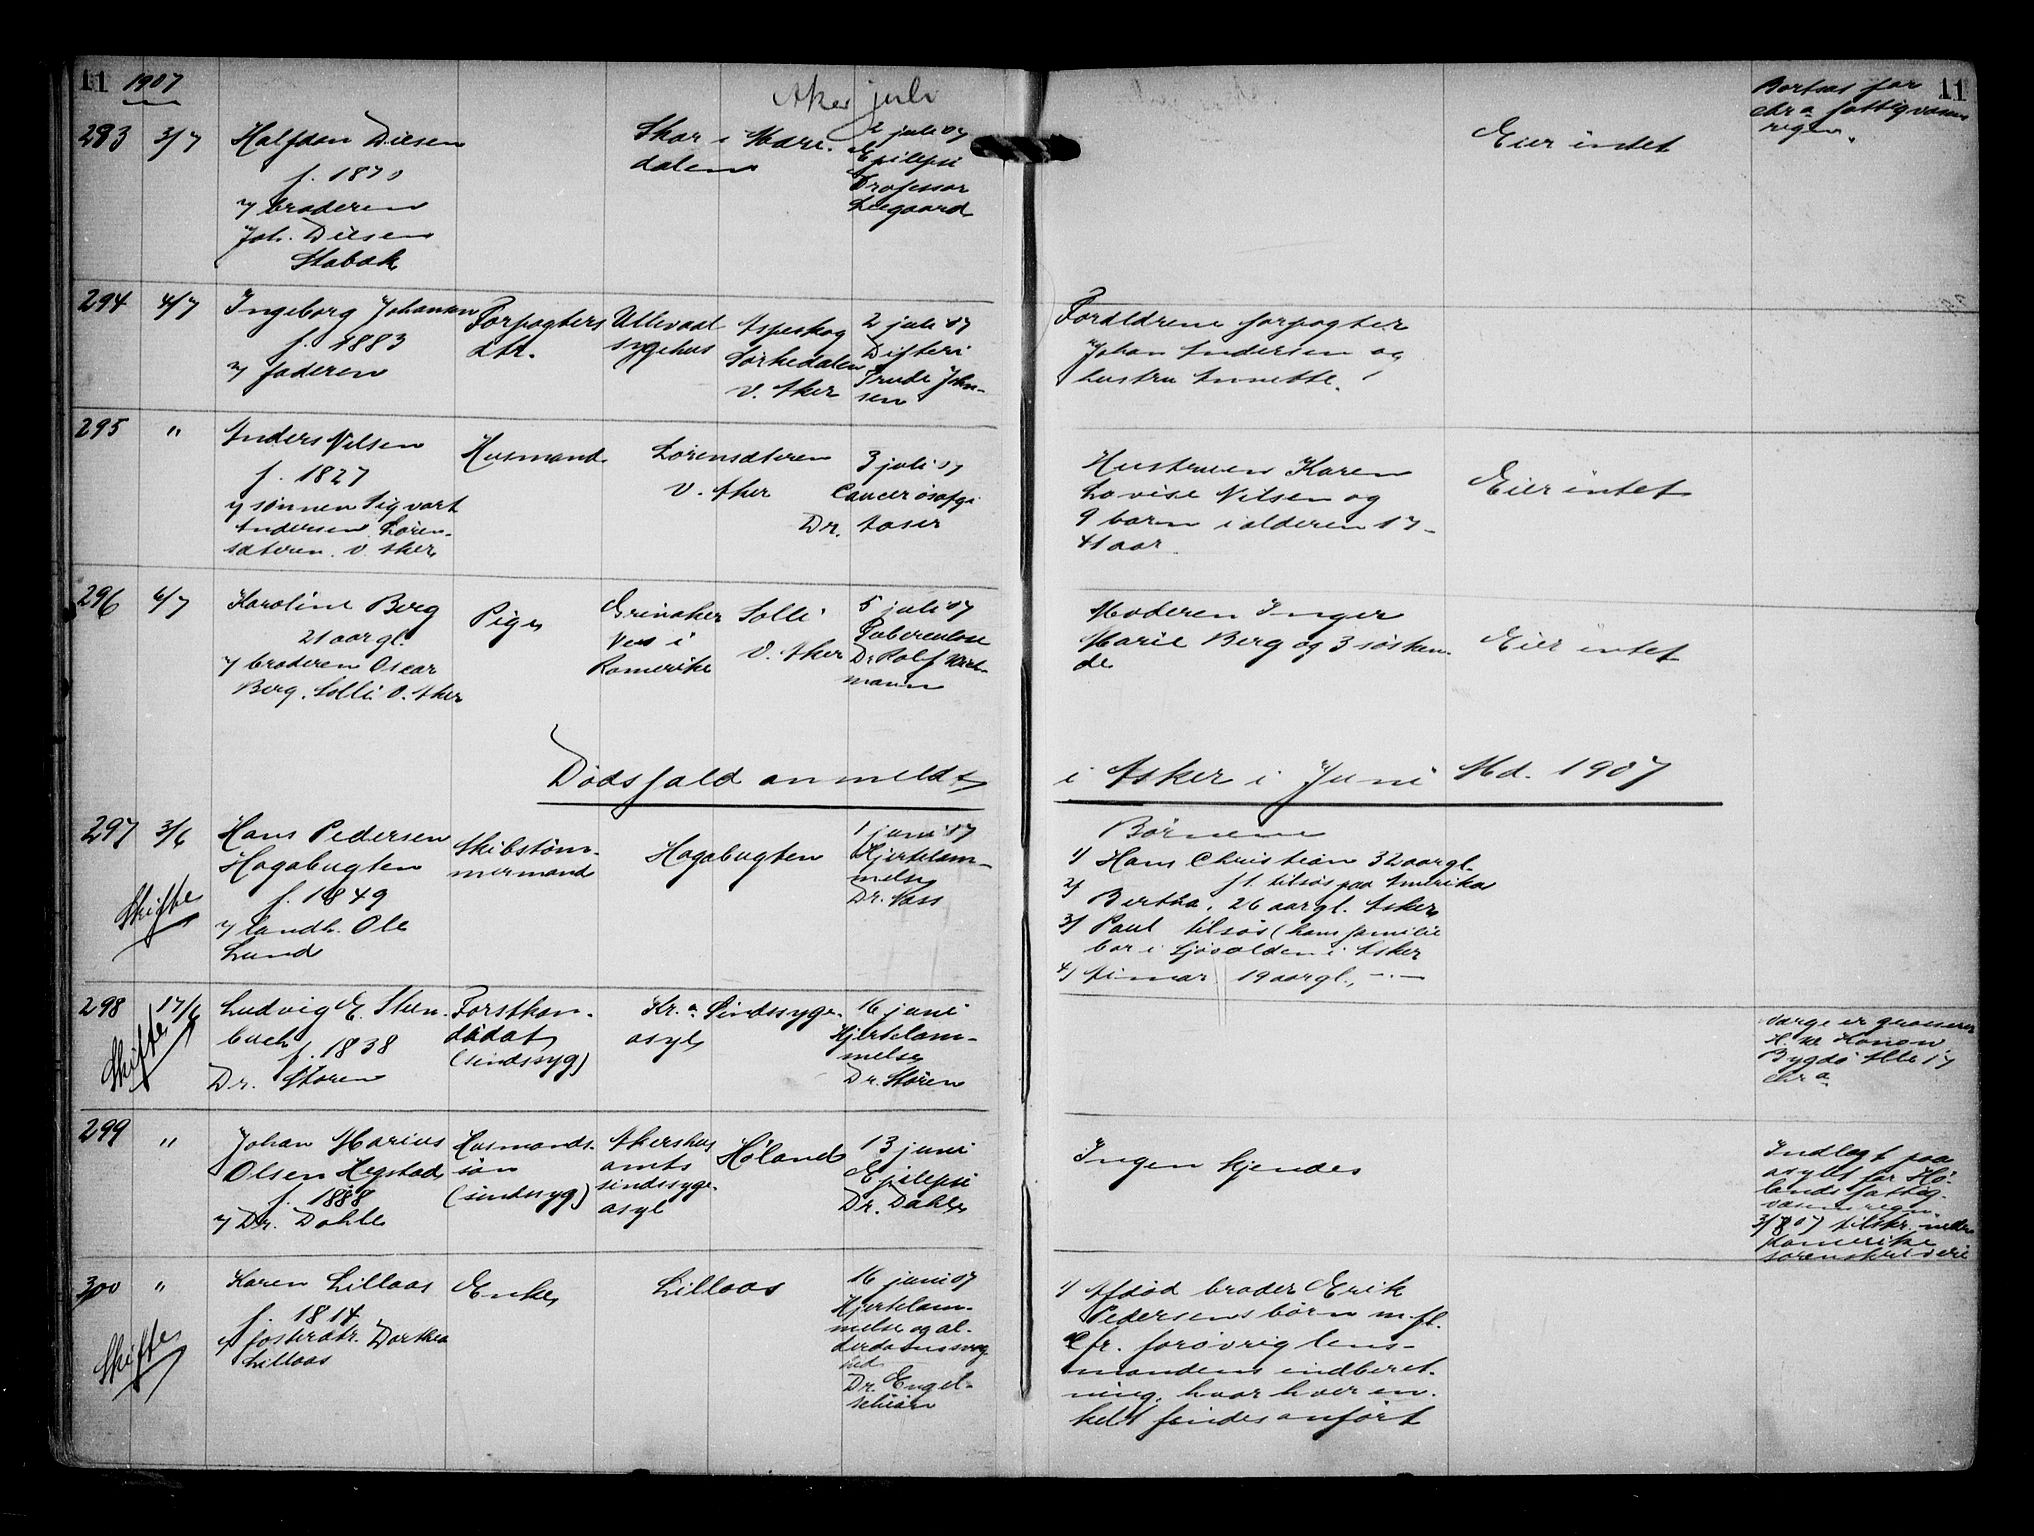 11 1907
Aker juli
11
293 3/7
Halfdan Diesen
f. 1870
v/ broderen
Joh. Diesen
Stabæk
Skar i Mari-
dalen
2 juli 07
Epilepsi
Professor
Leegaard
Eier intet
Bortsat for
Chr.a fattigvæsens
regn.
294 4/7
Ingeborg Johansen
f. 1883
v/ faderen
Forpagters
dtr.
Ullevaal
sygehus
Aspeskog
Sørkedalen
V. Aker
2 juli 07
Difteri
Frude John-
sen
Forældrene forpagter
Johan Andersen og
hustru Annette.
295 "
Anders Nilsen
f. 1827
v/ sønnen Sigvart
Andersen Løren-
sæteren. V. Aker
Husmand
Lørensæteren
V. Aker
3 juli 07
Cancer øsofgi
Dr. Aaser
Hustruen Karen
Lovise Nilsen og
9 barn i alderen 17-
41 aar.
Eier intet
296 6/7
Karoline Berg
21 aar gl.
v/ broderen Oscar
Berg. Solli V. Aker
Pige
Grinaker
Ves i
Romerike
Solli
V. Aker
5 juli 07
Tuberculose
Dr. Rolf
mann
Moderen Inger
Marie Berg og 3 sösken-
de
Eier intet
Dödsfald anmeldt i Asker i Juni Md. 1907
297 3/6
Skifte
Hans Pedersen
Hagabugten
f. 1849
v/ landh. Ole
Lund
Skibstöm-
mermand
Hagabugten
1 juni 07
Hjertelam-
melse
Dr. Aass
Börnene
1) Hans Christian 32 aar gl.
f.t. tilsøs paa Amerika
2) Bertha, 26 aar gl. Asker
3) Paul tilsøs (hans familie
bor i Sjøvolden i Asker
4) Aimar 19 aar gl., -"-
298 17/6
Skifte
Ludvig E. Steen-
buch
f. 1838
Dr. Støren
Forstkan-
didat
(sindssyg)
Kr.a Sindssyge-
asyl
16 juni
Hjertelam-
melse
Dr. Støren
Værge er grosserer
H. Hansen
Bygdø Alle 17
Chr.a
299 "
Johan Marius
Olsen Hegstad
f. 1888
v/ Dr. Dahle
Husmands-
søn
(sindssyg)
Akershus
amts
sindssyge-
asyl
Høland
13 juni
Epilepsi
Dr. Dahle
Ingen kjendes
Indlagt paa
asylet for Hø-
lands fattig-
væsens regn.
3/8 07 tilskr. nedre
Romerike
sorenskriveri
300 "
Skifte
Karen Lillaas
f. 1814
v/ fosterdtr. Dorthea
Lillaas
Enke
Lillaas
16 juni 07
Hjertelam-
melse og al-
derdomssvag-
hed
Dr. Engel-
schiøn
1) Afdöd broder Erik
Pedersens börn m.fl.
Cfr. forövrig lens-
mandens indberet-
ning, hvor hver en-
kelt findes anfört